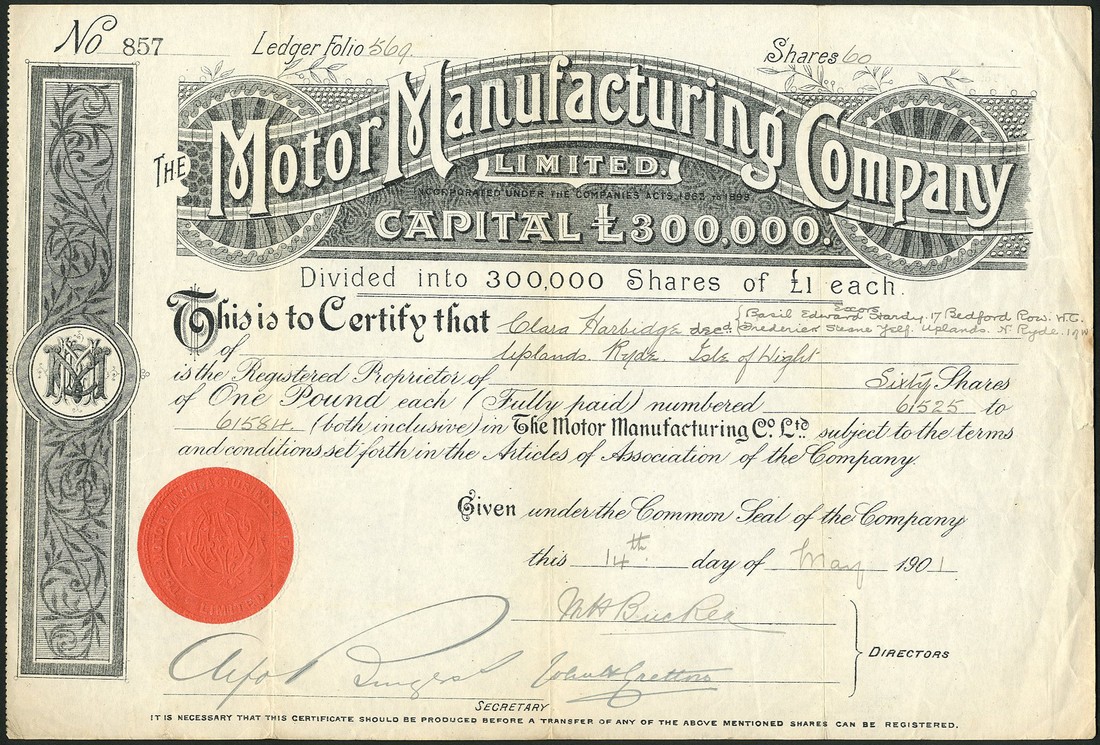 No 857 Ledger Folio 569 Shares 60
THE MOTOR MANUFACTURING COMPANY
LIMITED.
INCORPORATED UNDER THE COMPANIES ACTS, 1862 to 1899
CAPITAL £300,000.
Divided into 300,000 Shares of £1 each.
Exors
This is to Certify that Clara Harbidge decd. { Basil Edward Hardy. 17 Bedford Row. W.C.
Frederick Yelf. Uplands. Ryde. I of W
of Uplands. Ryde. Isle of Wight
is the Registered Proprietor of Sixty Shares
of One Pound each (Fully paid) numbered 61525 to
61584 (both inclusive) in The Motor Manufacturing Co. Ltd subject to the terms
and conditions set forth in the Articles of Association of the Company.
Given under the Common Seal of the Company
this 14th day of May 1901
DIRECTORS
SECRETARY
IT IS NECESSARY THAT THIS CERTIFICATE SHOULD BE PRODUCED BEFORE A TRANSFER OF ANY OF THE ABOVE MENTIONED SHARES CAN BE REGISTERED.